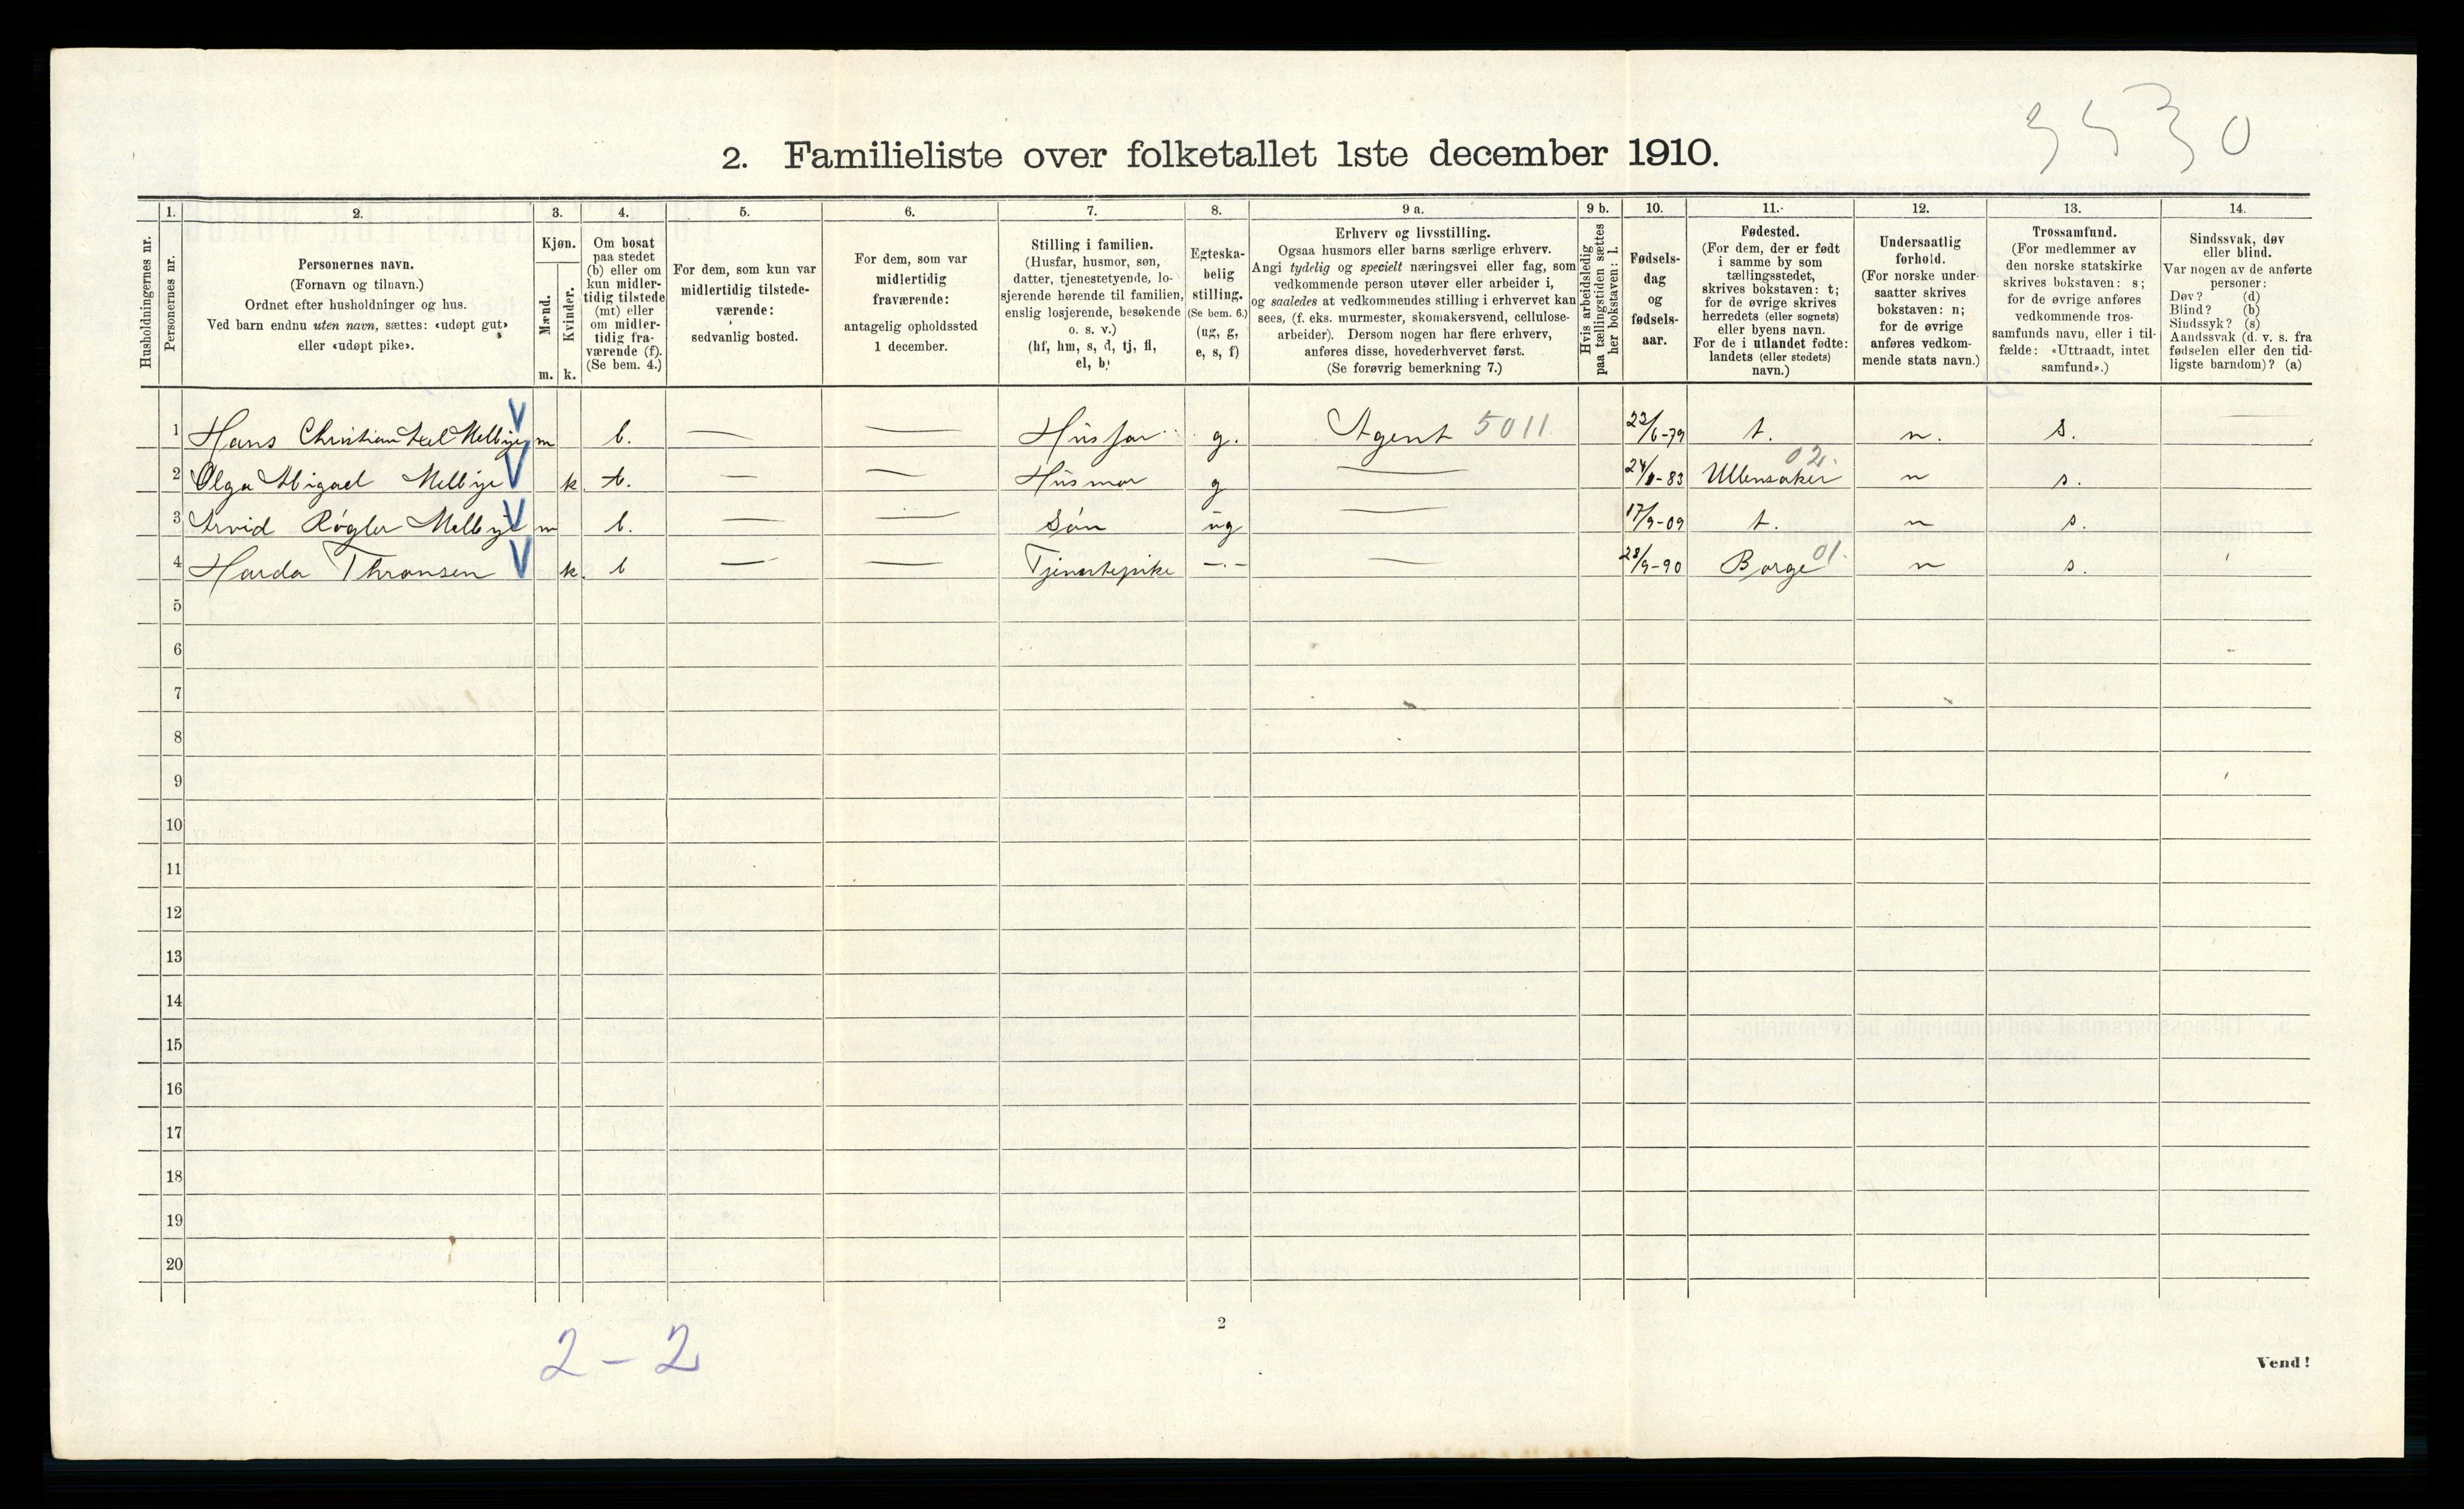 3530
2. Familieliste over folketallet 1ste december 1910.
Husholdningernes nr.
1. Personernes nr.
2. Personernes navn. (Fornavn og tilnavn.) Ordnet efter husholdninger og hus. Ved barn endnu uten navn, sættes: «udøpt gut» eller «udøpt pike».
3. Kjøn. Mænd. m. Kvinder. k.
4. Om bosat paa stedet (b) eller om kun midlertidig tilstede (mt) eller om midlertidig fraværende (f). (Se bem. 4.)
5. For dem, som kun var midlertidig tilstedeværende: sedvanlig bosted.
6. For dem, som var midlertidig fraværende: antagelig opholdssted 1 december.
7. Stilling i familien. (Husfar, husmor, søn, datter, tjenestetyende, losjerende hørende til familien, enslig losjerende, besøkende o. s. v.) (hf, hm, s, d, tj, fl, el, b)
8. Egteskabelig stilling. (Se bem. 6.) (ug, g, e, s, f)
9 a. Erhverv og livsstilling. Ogsaa husmors eller barns særlige erhverv. Angi tydelig og specielt næringsvei eller fag, som vedkommende person utøver eller arbeider i, og saaledes at vedkommendes stilling i erhvervet kan sees, (f. eks. murmester, skomakersvend, cellulosearbeider). Dersom nogen har flere erhverv, anføres disse, hovederhvervet først. (Se forøvrig bemerkning 7.)
9 b. Hvis arbeidsledig paa tællingstiden sættes her bokstaven: l.
10. Fødselsdag og fødselsaar.
11. Fødested. (For dem, der er født i samme by som tællingsstedet, skrives bokstaven: t; for de øvrige skrives herredets (eller sognets) eller byens navn. For de i utlandet fødte: landets (eller stedets) navn.)
12. Undersaatlig forhold. (For norske undersaatter skrives bokstaven: n; for de øvrige anføres vedkommende stats navn.)
13. Trossamfund. (For medlemmer av den norske statskirke skrives bokstaven: s; for de øvrige anføres vedkommende trossamfunds navn, eller i tilfælde: «Uttraadt, intet samfund».)
14. Sindssvak, døv eller blind. Var nogen av de anførte personer: Døv? (d) Blind? (b) Sindssyk? (s) Aandssvak (d. v. s. fra fødselen eller den tidligste barndom)? (a)
1 Hans Christian Melbye V m b. — — Husfar g. Agent 5011 22/6-79 t. n. s. —
2 Olga Abigael Melbye V k. b. — — Husmor g — 83 Ullensaker 02. n s.
3 Arvid Røgler Melbye V m b. — — Søn ug — 17/9-09 t. n s.
4 Harda Thransen V k. b — — Tjenestepike —.— — 28/9-90 Borge 01. n s.
5
6
7
8
9
10
11
12
13
14
15
16
17
18
19
20
2
2 - 2
Vend!